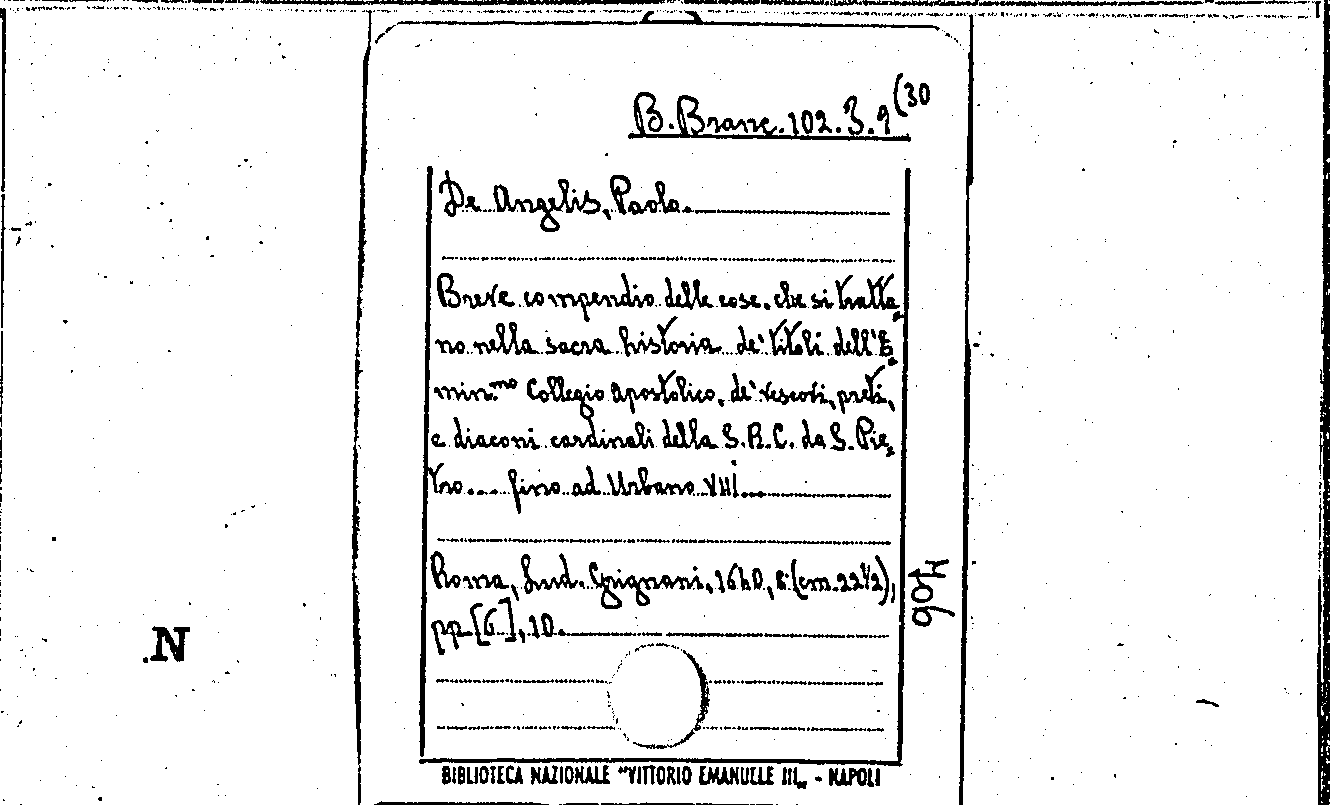 B. Branc. 102. 3. 9 (30
De Angelis, Paolo.
Breve compendio delle cose che si tratta,
no nella sacra historia de' titoli dell'E,
min.mo Collegio Apostolico, de' vescovi, preti,
e diaconi cardinali della S.R.C. da S. Pie,
tro.... fino ad Urbano VIII...
Roma, Lud. Grignani, 1640, 8° (cm. 22 1/2),
pp. [6], 10.
406
N
BIBLIOTECA NAZIONALE "VITTORIO EMANUELE III„ - NAPOLI